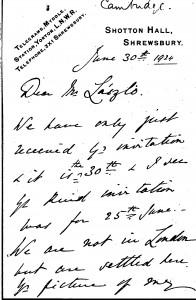 Cambridge.
TELEGRAMS MIDDLE.
STATION, YORTON, L.N.W.R.
TELEPHONE XXI SHREWSBURY.
SHOTTON HALL,
SHREWSBURY.
June 30th 1924
Dear Mr László.
We have only just
received yr invitation
& it is the 30th & I see
yr kind invitation
was for 25th June.
We are not in London
but are settled here
yr picture of my